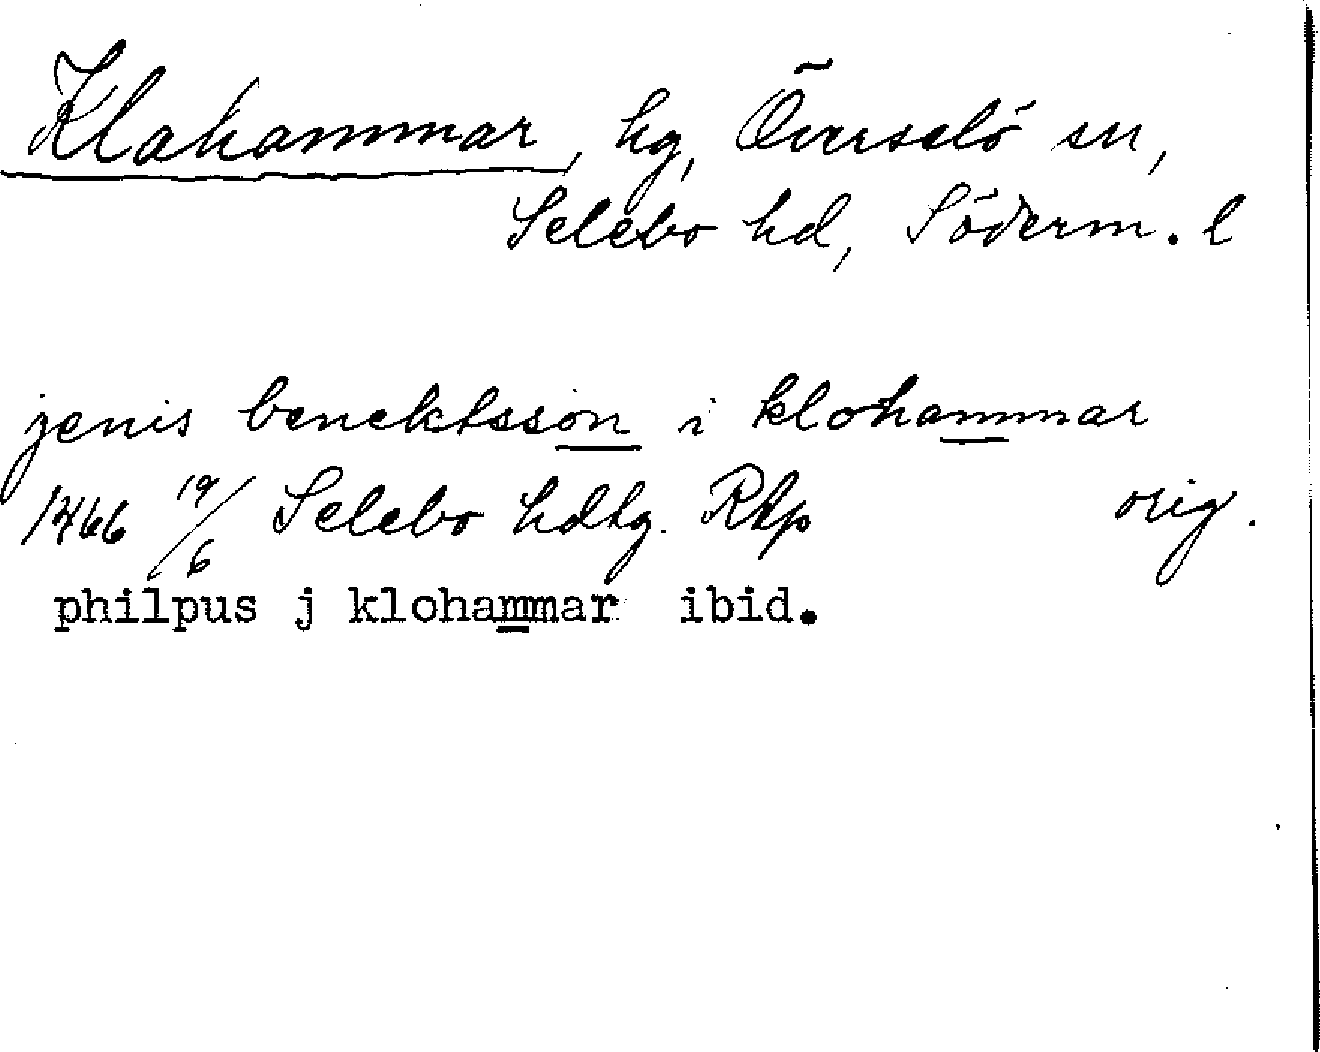 Klahammar, hg, Överselö sn,
Selebo hd, Söderm. l
jenis benektsson i klohammar
1466 19/6 Selebo hdtg. Rtp orig.
philpus j klohammar ibid.